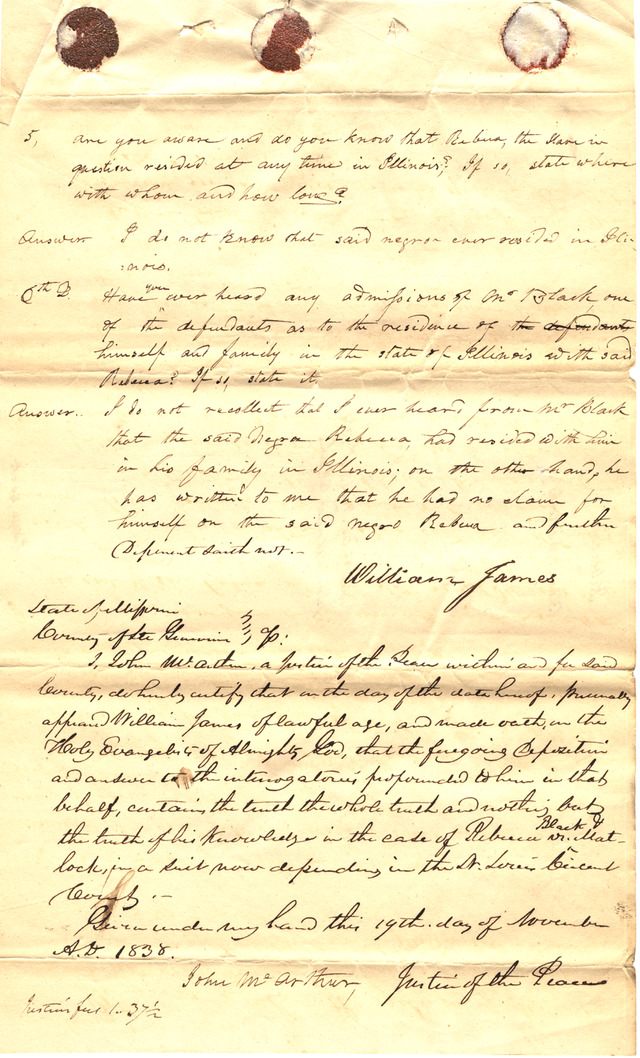 5, are you aware and do you know that Rebecca, the slave in
question resided at any time in Illinois? If so, state where
with whom and how long?
Answer I do not know that said negroe ever resided in Illi-
:nois.
6th D. Have you ever heard any admissions of Mr Black one
of the defendants as to the residence of the defendants
himself and family in the state of Illinois with said
Rebecca? If so, state it.
Answer.. I do not recollect that I ever heard from Mr Black
that the said Negroe Rebecca, had resided with him
in his family in Illinois; on the other hand, he
has written to me that he had no claim for
himself on the said negro Rebecca and further
Deponent saith not.-
William James
State of Missouri
County of Ste Genevieve } Ss:
I, John McArthur, a Justice of the Peace within and for said
County, do hereby certify that on the day of the date hereof, personally
appeared William James of lawful age, and made oath, on the
Holy Evangelists of Almighty God, that the foregoing Deposition
and answer to the interrogatories propounded to him in that
behalf, contains the truth the whole truth and nothing but
the truth of his Knowledge in the case of Rebecca vs. Black & Mat-
lock, in a suit now depending in the St. Louis Circuit
Court .-
Given under my hand this 19th. day of November
A.D. 1838.
John McArthur, Justice of the Peace
Justice's fees 1.37½